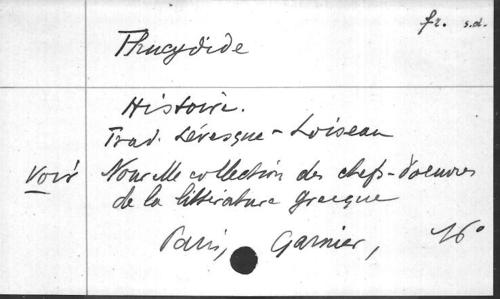 fr. s.d.
Thucydide
Histoire.
Trad. Lévesque - Loiseau
Voir Nouvelle collection des chefs-d'oeuvres
de la littérature grecque
Paris, Garnier, 16°